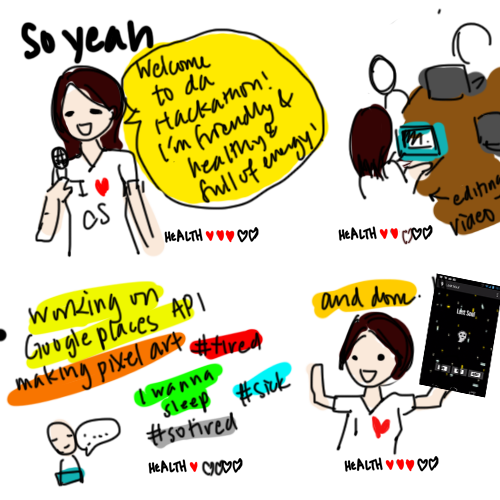 So yeah
Welcome
to da
Hackathon!
I'm friendly &
healthy &
full of energy!
I ♥
CS
HEALTH
editing
video
HEALTH
working on
Google places API
making pixel art
#tired
I wanna
sleep
#sick
#sotired
....
HEALTH
and done.
HEALTH